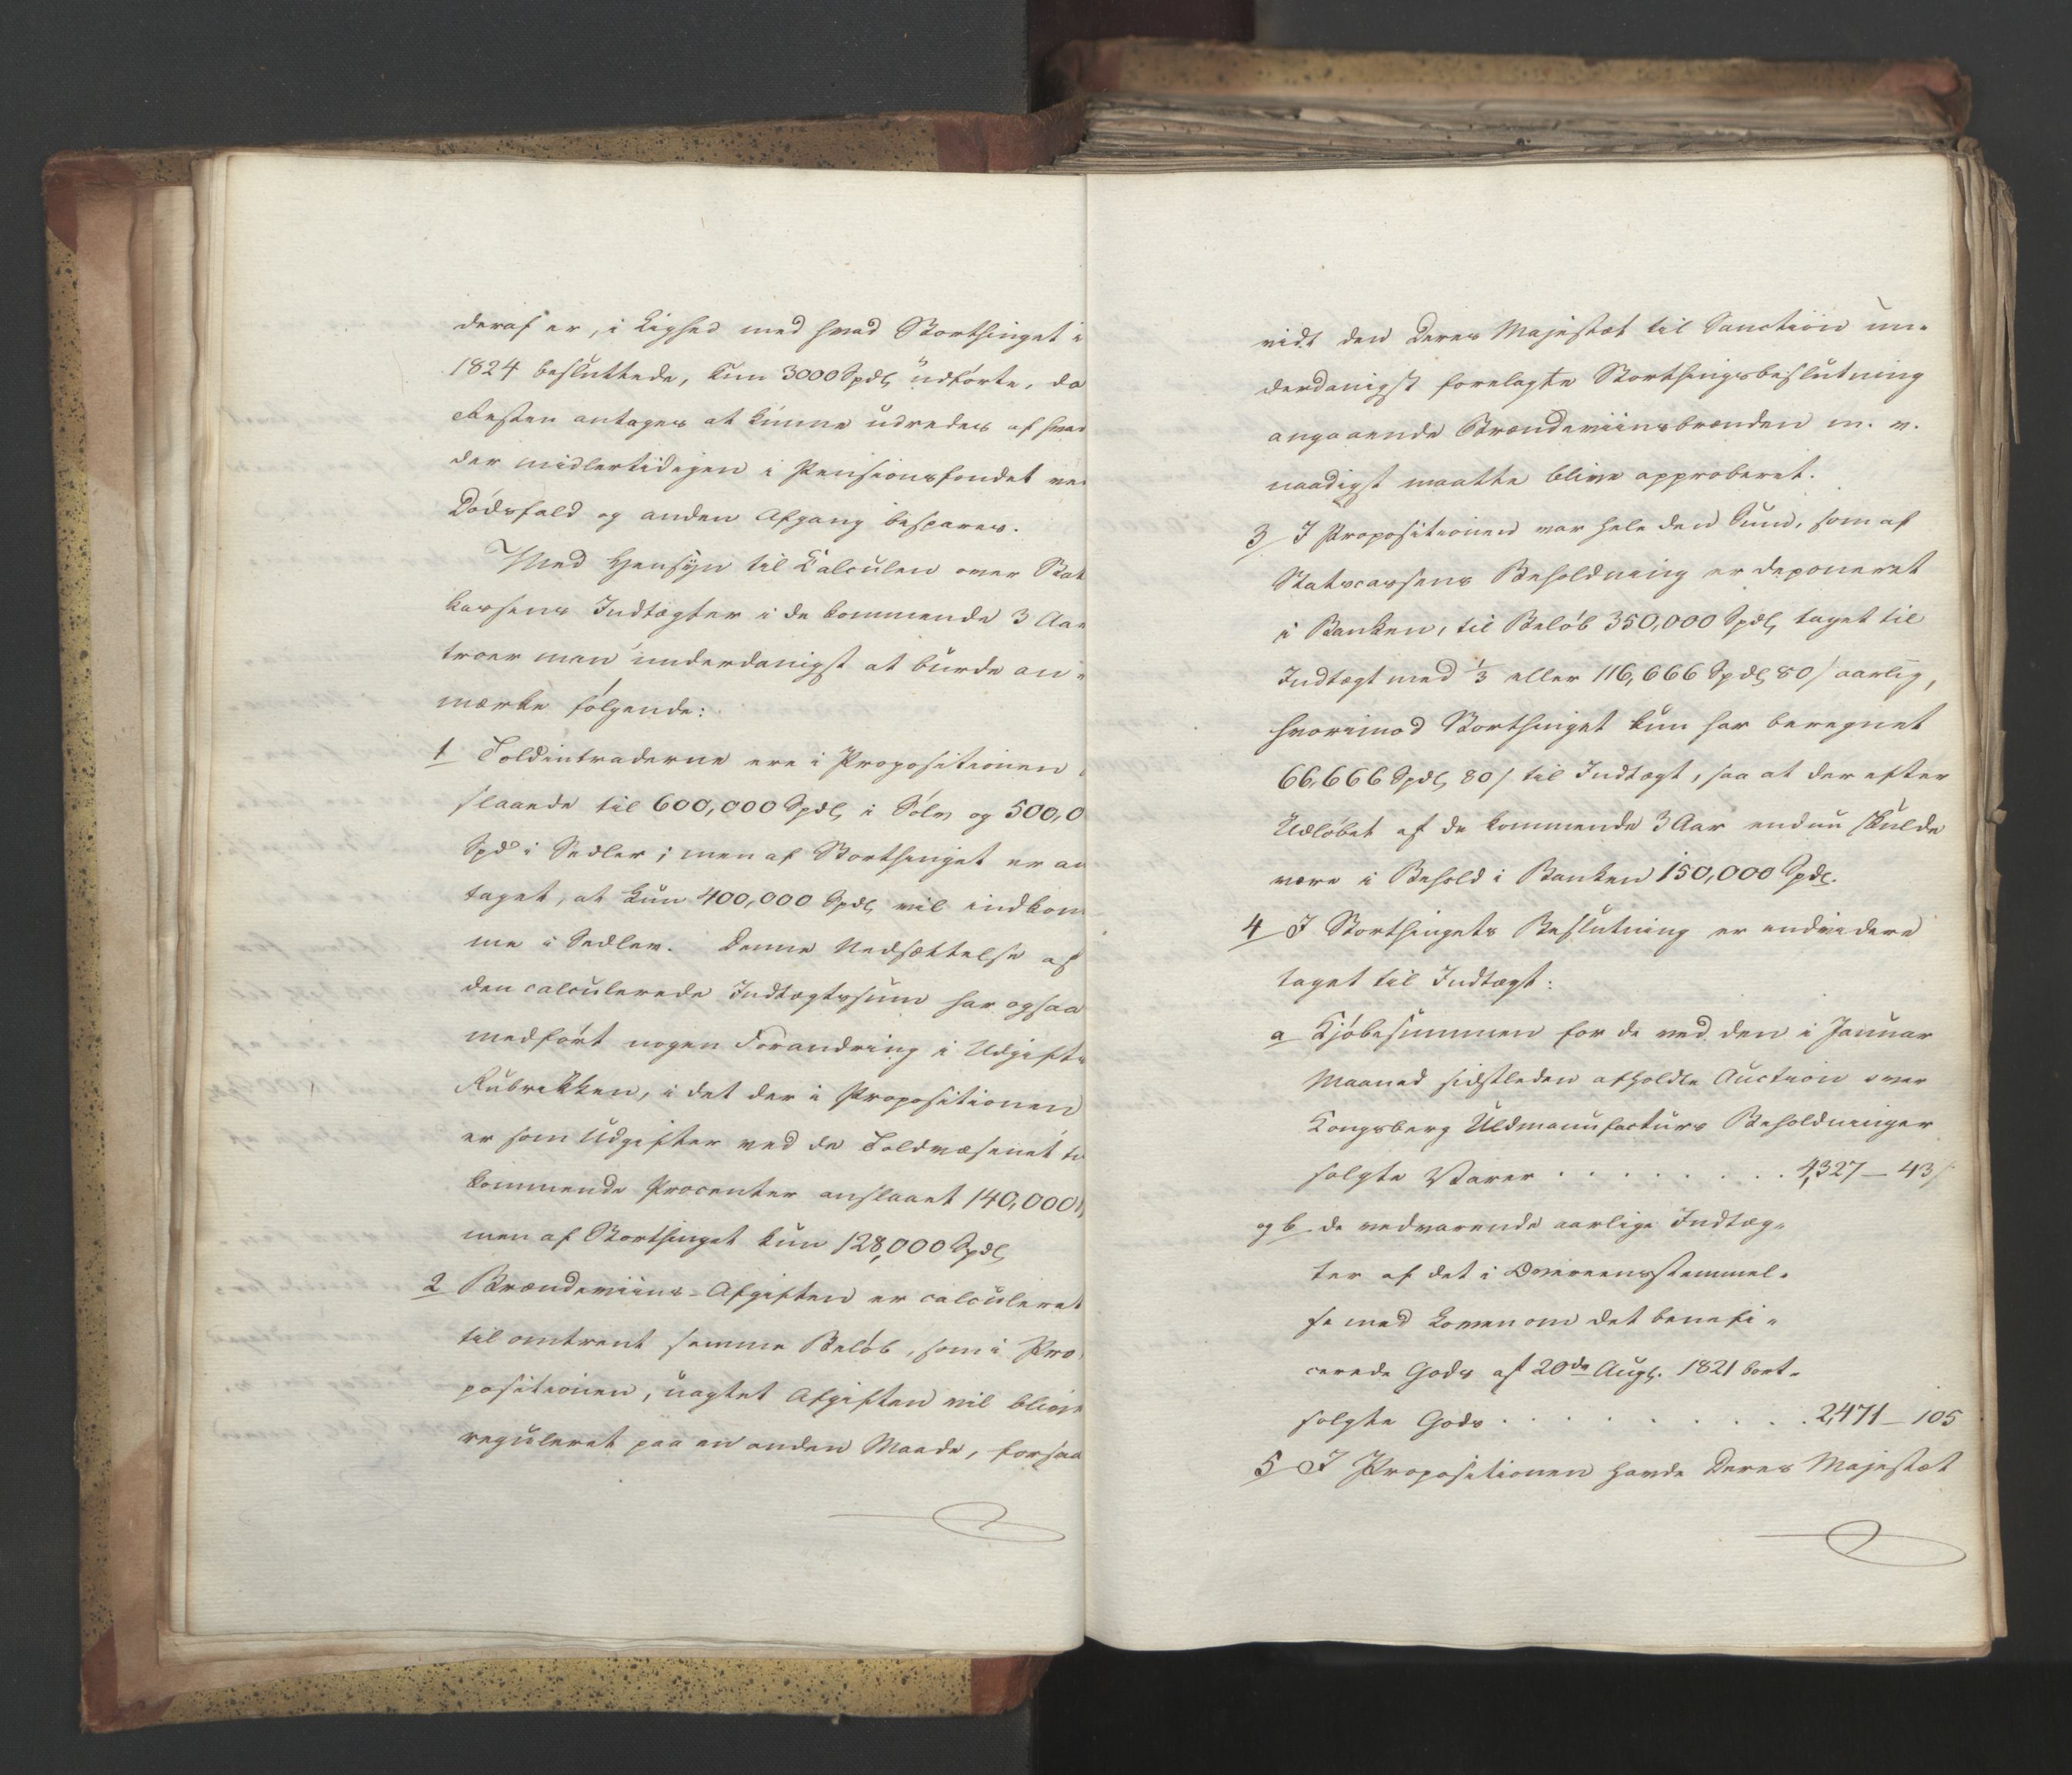 deraf er, i Lighed med hvad Storthinget i
1824 besluttede, kun 3000 Spdl, udførte, da
Resten antages at kunne udredes af hvad
der midlertidigen i Pensionsfondet ve
Dødsfald og anden Afgang bespares.
Med Hensyn til Calculen over Stat
kassens Indtægter i de kommende 3 Aar
troer man underdanigst at burde an-
mærke følgende:
1 Toldintraderne ere i Propositionen
slaaede til 600,000 Spdl, i Sølv og 500,0
Spd i Sedler; men af Storthinget er an
taget, at kun 400,000 Spdl, vil indkom
me i Sedler. Denne Nedsættelse af
den calculerede Indtægtssum har ogsaa
medført nogen Forandring i Udgifts
Rubrikken, i det der i Propositionen
er som Udgifter ved de Toldvæsenet til
kommende Procenter anslaaet 140,000
men af Storthinget kun 128,000 Spdl,
2 Brændeviins-Afgiften er calculeret
til omtrent samme Beløb, som i Pro
positionen, uagtet Afgiften vil blive
reguleret paa en anden Maade, forsaa
vidt den Deres Majestæt til Sanction un-
derdanigst forelagte Storthingsbeslutning
angaaende Brændeviinsbrænden m. v.
naadigst maatte blive approberet.
3/ I Propositionen var hele den Sum, som af
Statscassens Beholdning er deponeret
i Banken, til Beløb 350,000 Spdl, taget til
Indtægt med 1/3 eller 116,666 Spdl, 80/ aarlig,
hvorimod Storthinget kun har beregnet
66,666 Spdl, 80/ til Indtægt, saa at der efter
Udløbet af de kommende 3 Aar endnu skulde
være i Behold i Banken 150,000 Spdl.
4/ I Storthingets Beslutning er endvidere
taget til Indtægt:
a Kjøbesummen for de ved den i Januar
Maaned sidstleden afholdte Auction over
Kongsberg Uldmanufacturs Beholdninger
solgte Varer . . . . . . . . . 4,327 – 43/
og b de vedvarende aarlige Indtæg-
ter af det i Overeensstemmel-
se med Loven om det benefi-
cerede Gods af 20de Aug. 1821 bort-
solgte Gods . . . . . . . . . . 2,471 – 105
5/ I Propositionen havde Deres Majestæt